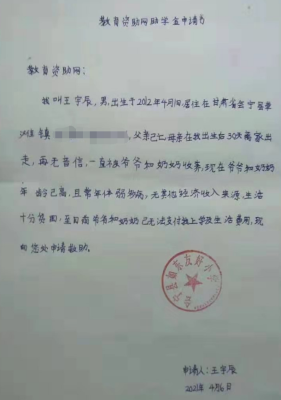 教育资助网助学金申请书
教育资助网:
我叫王宇辰,男,出生于2012年4月,居住在甘肃省会宁县
镇 父亲已亡,母亲在我出生后30天离家出
走,再无音信,一直被爷爷和奶奶收养,现在爷爷和奶奶
年龄已高,且常年体弱多病,无其他经济收入来源,生活
十分贫困,至目前爷爷和奶奶已无法支付我上学及生活费用,现
向您处申请救助。
会宁县 友好小学
申请人:王宇辰
4月6日